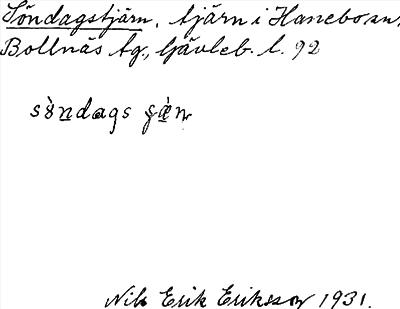 Söndagstjärn, tjärn i Hanebo sn.
Bollnäs tg., Gävleb. l. 92
Nils Erik Eriksson 1931.